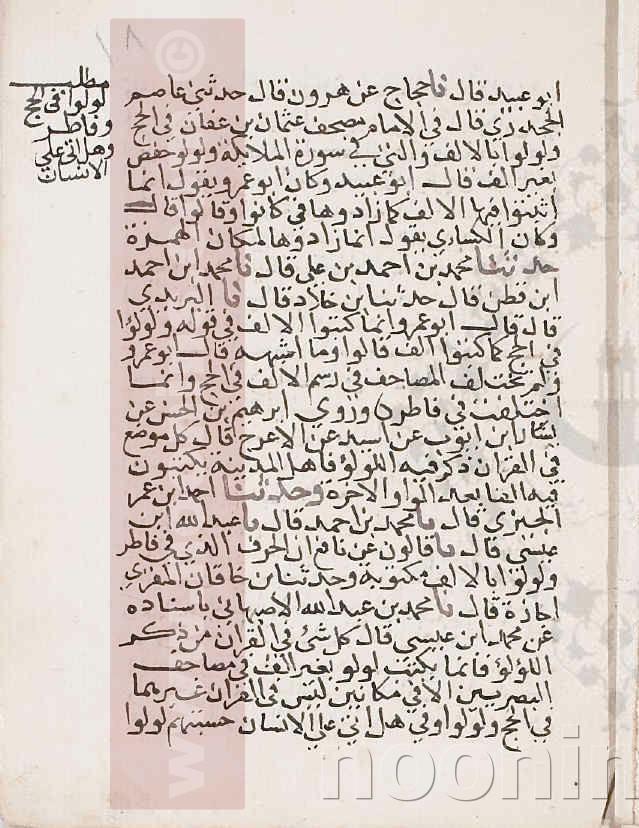 ١٨
مطلب
لولوا في الحج
وفاطر
وهل اتى على
الانسان
ابو عبيد قال نا حجاج عن هرون قال حدثني عاصم
الجحدري قال في الامام مصحف عثمان بن عفان في الحج
ولولوا بالالف والتي في سورة الملائكة ولولو خفض
بغير الف قال ابو عبيد وكان ابو عمرو يقول انما
اثبتوا فيها الالف كما زادوها في كانوا وقالوا قال
وكان الكسائي يقول انما زادوها لمكان الهمزة
حدثنا محمد بن احمد بن علي قال نا محمد ابن احمد
ابن قطن قال حدثنا بن خلاد قال نا اليزيدي
قال قال ابو عمرو انما كتبوا الالف في قوله ولولوا
في الحج كما كتبوا الف قالوا وما اشبهه قال ابو عمرو
ولم تختلف المصاحف في رسم الالف في الحج وانما
اختلفت في فاطر وروي ابرهيم بن الحسن عن
بشار ابن ايوب عن اسيد عن الاعرج قال كل موضع
في القران ذكر فيه اللولؤ فاهل المدينة يكتبون
فيه الفا بعد الواو الاخرة وحدثنا احمد ابن عمر
الجيزي قال نا محمد بن احمد قال نا عبد الله ابن
عيسى قال نا قالون عن نافع ان الحرف الذي في فاطر
ولولوا بالالف مكتوبة وحدثنا بن خاقان المقري
اجازة قال نا محمد بن عبد الله الاصبهاني باسناده
عن محمد ابن عيسى قال كل شئ في القران من ذكر
اللؤلؤ فانما يكتب لولو بغير الف في مصاحف
البصريين الا في مكانين ليس في القران غيرهما
في الحج ولولوا وفي هل اتى على الانسان حسبتهم لولوا
noonin